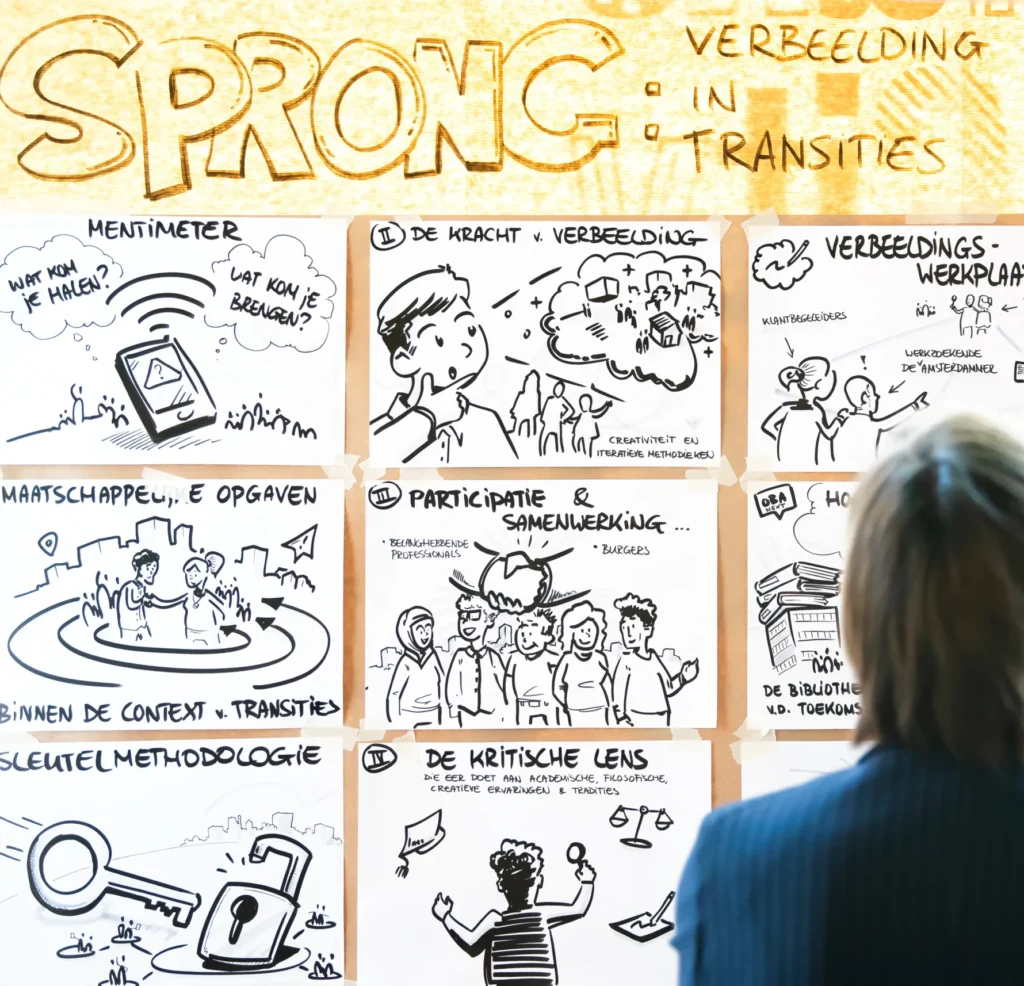 SPRONG:
VERBEELDING
IN
TRANSITIES
MENTIMETER
WAT KOM
JE HALEN?
WAT KOM JE
BRENGEN?
II DE KRACHT v. VERBEELDING
CREATIVITEIT EN
ITERATIEVE METHODIEKEN
VERBEELDINGS-
WERKPLAA
KLANTBEGELEIDERS
WERKZOEKENDE
DE AMSTERDAMMER
MAATSCHAPPELIJKE OPGAVEN
BINNEN DE CONTEXT v. TRANSITIES
III PARTICIPATIE &
SAMENWERKING ...
• BELANGHEBBENDE
PROFESSIONALS
• BURGERS
OBA
NEXT
HO
DE BIBLIOTHE
V.D. TOEKOMS
SLEUTELMETHODOLOGIE
IV DE KRITISCHE LENS
DIE EER DOET AAN ACADEMISCHE, FILOSOFISCHE,
CREATIEVE ERVARINGEN & TRADITIES